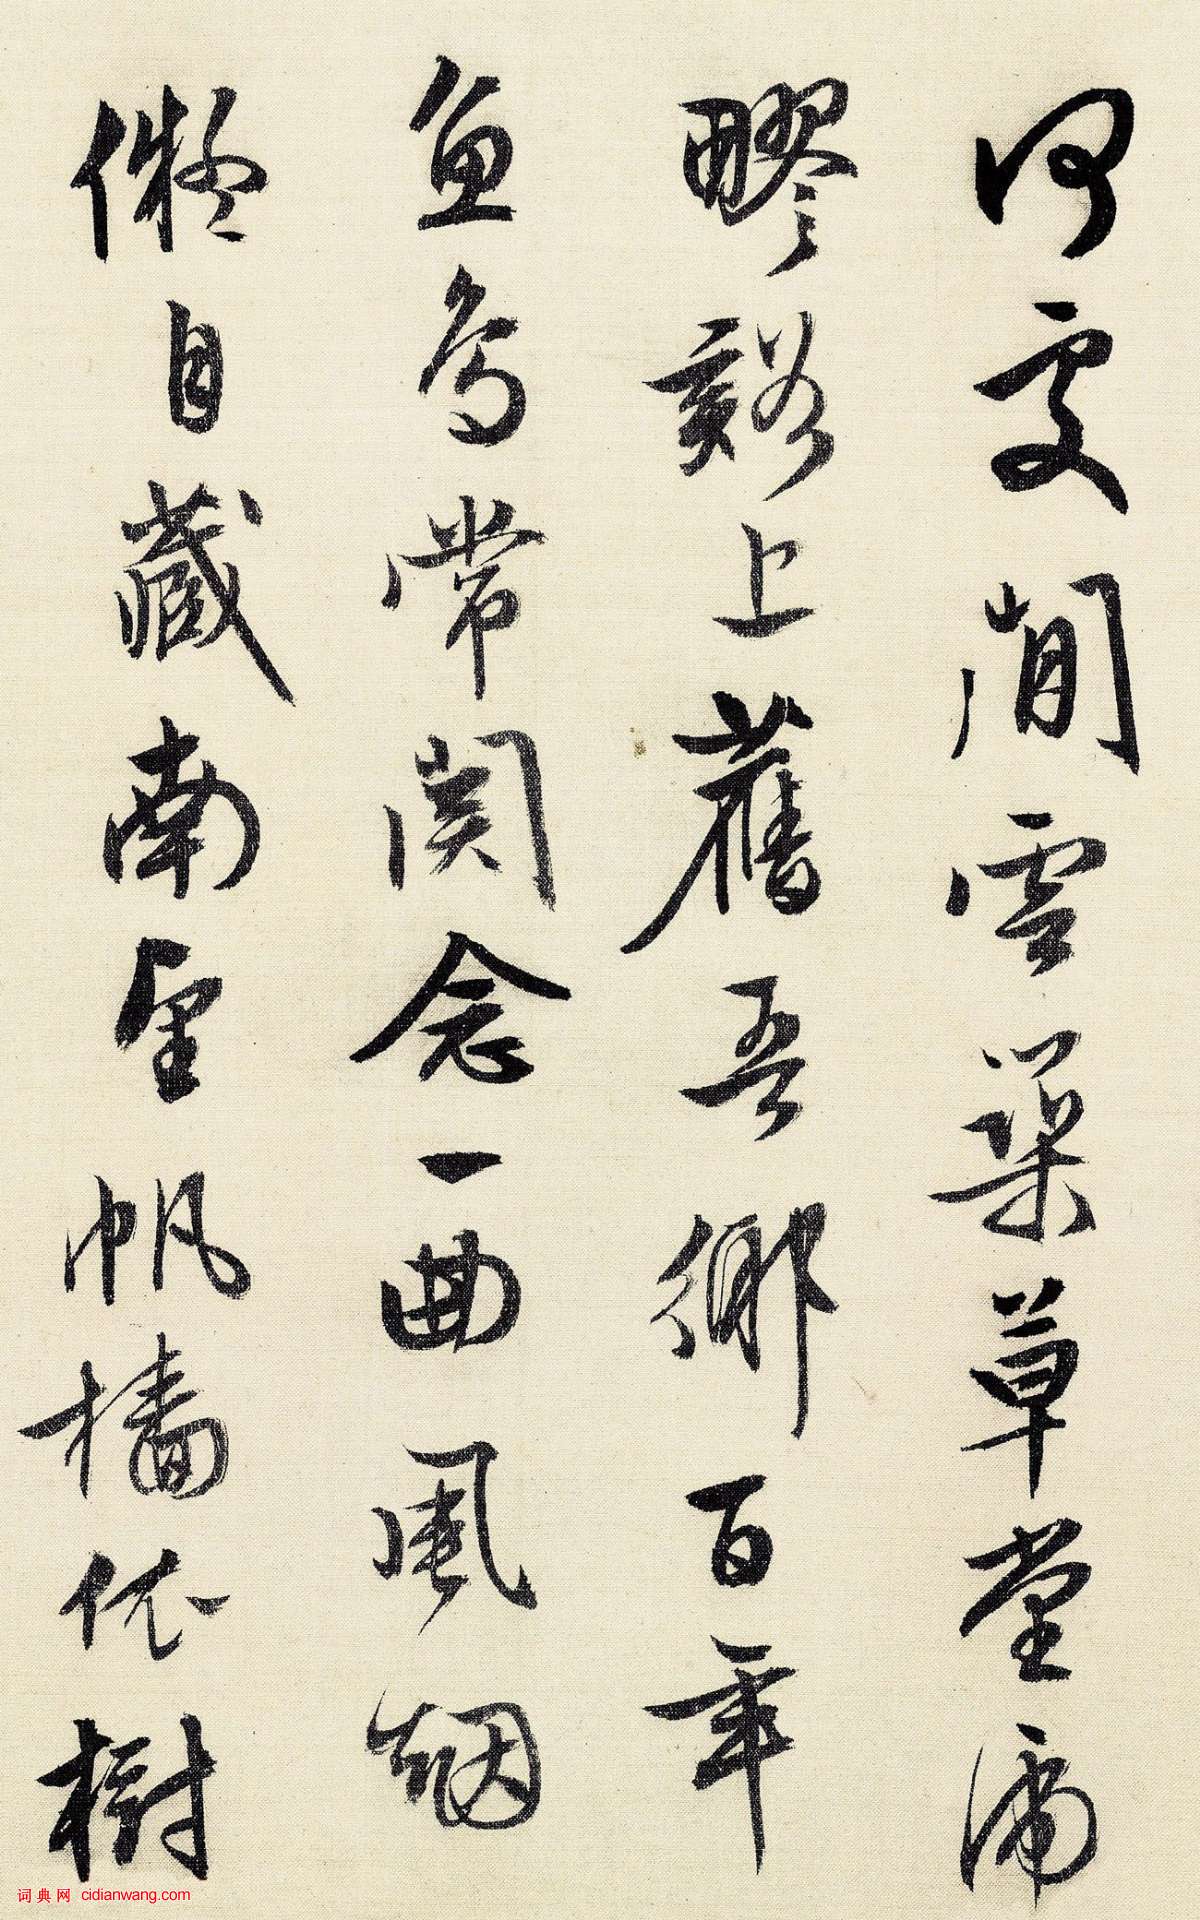 何處閒雲築草堂
疁谿上舊吾鄉百年
魚鳥常関念一曲風烟
儗自藏南望帆檣依樹
词典网 cidianwang.com